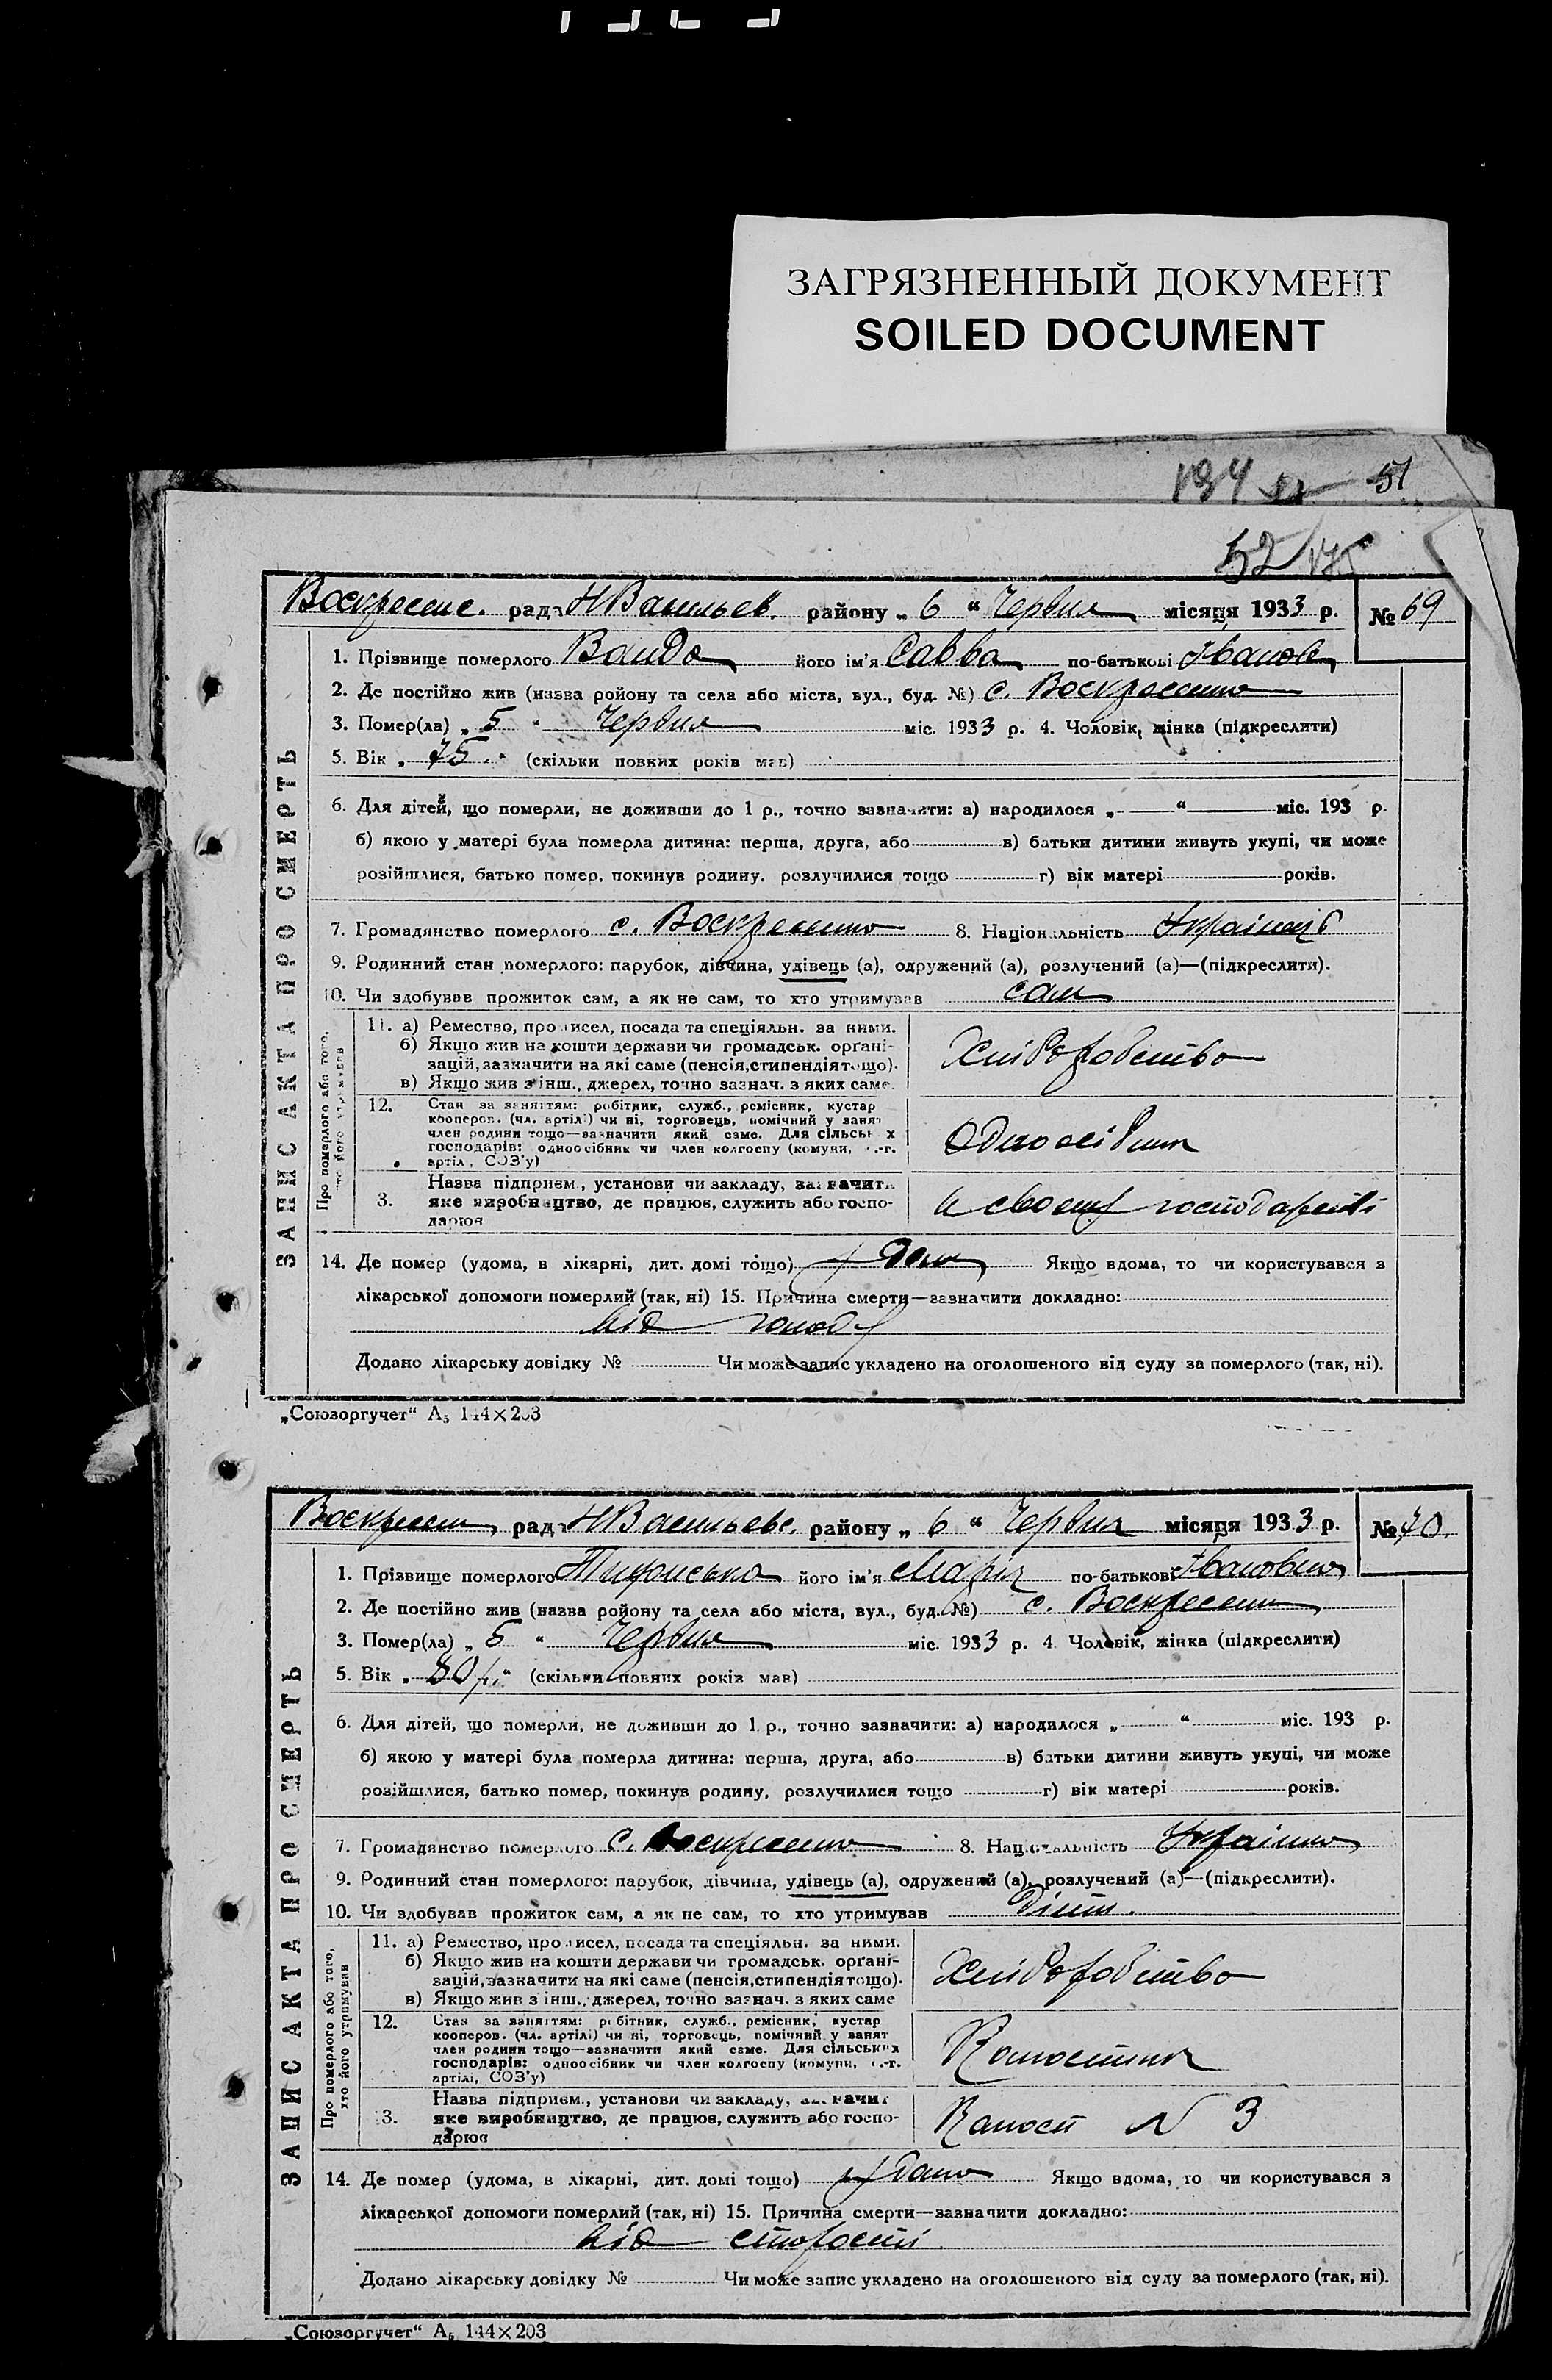 ЗАГРЯЗНЕННЫЙ ДОКУМЕНТ
SOILED DOCUMENT
194 51
52
Воскресенс. рада НВасильев. району „ 6 “ Червня місяця 1933 р. № 69
ЗАПИС АКТА ПРО СМЕРТЬ
1. Прізвище померлого його ім'я Савва по-батькові Іванов
2. Де постійно жив (назва ройону та села або міста, вул., буд. №) с. Воскресенка
3. Помер(ла) „ 5 “ Червня міс. 1933 р. 4. Чоловік, жінка (підкреслити)
5. Вік „ 75 “ (скільки повних років мав)
6. Для дітей, що померли, не доживши до 1 р., точно зазначити: а) народилося „ “ міс. 193 р.
б) якою у матері була померла дитина: перша, друга, або в) батьки дитини живуть укупі, чи може
розійшлися, батько помер, покинув родину, розлучилися тощо г) вік матері років.
7. Громадянство померлого с. Воскресенка 8. Національність Українец
9. Родинний стан померлого: парубок, дівчина, удівець (а), одружений (а), розлучений (а)—(підкреслити).
10. Чи здобував прожиток сам, а як не сам, то хто утримував сам
Про померлого або того, хто його утримував
11. а) Ремество, промисел, посада та спеціяльн. за ними.
б) Якщо жив на кошти держави чи громадськ. орґані-
зацій, зазначити на які саме (пенсія, стипендія тощо).
в) Якщо жив з інш., джерел, точно зазнач. з яких саме.
Хліборобство
12. Стан за заняттям: робітник, служб., ремісник, кустар
кооперов. (чл. артілі) чи ні, торговець, помічний у занят
член родини тощо—зазначити який саме. Для сільських
господарів: одноосібник чи член колгоспу (комуни, с.-г.
артілі, СОЗ'у)
Одноосібник
13. Назва підприєм., установи чи закладу, зазначити
яке виробництво, де працює, служить або госпо-
дарює
в своему господарстві
14. Де помер (удома, в лікарні, дит. домі тощо) дома Якщо вдома, то чи користувався з
лікарської допомоги померлий (так, ні) 15. Причина смерти—зазначити докладно:
від голоду
Додано лікарську довідку № Чи може запис укладено на оголошеного від суду за померлого (так, ні).
„Союзоргучет“ А5 144×203
Воскресен. рада НВасильевс. району „ 6 “ Червня місяця 1933 р. № 70.
ЗАПИС АКТА ПРО СМЕРТЬ
1. Прізвище померлого його ім'я Марія по-батькові Івановна
2. Де постійно жив (назва ройону та села або міста, вул., буд. №) с. Воскресенка
3. Помер(ла) „ 5 “ Червня міс. 1933 р. 4. Чоловік, жінка (підкреслити)
5. Вік „ 80 р. “ (скільки повних років мав)
6. Для дітей, що померли, не доживши до 1 р., точно зазначити: а) народилося „ “ міс. 193 р.
б) якою у матері була померла дитина: перша, друга, або в) батьки дитини живуть укупі, чи може
розійшлися, батько помер, покинув родину, розлучилися тощо г) вік матері років.
7. Громадянство померлого с. Воскресенка 8. Національність Українка
9. Родинний стан померлого: парубок, дівчина, удівець (а), одружений (а), розлучений (а)—(підкреслити).
10. Чи здобував прожиток сам, а як не сам, то хто утримував діти.
Про померлого або того, хто його утримував
11. а) Ремество, промисел, посада та спеціяльн. за ними.
б) Якщо жив на кошти держави чи громадськ. орґані-
зацій, зазначити на які саме (пенсія, стипендія тощо).
в) Якщо жив з інш., джерел, точно зазнач. з яких саме
Хліборобство
12. Стан за заняттям: робітник, служб., ремісник, кустар
кооперов. (чл. артілі) чи ні, торговець, помічний у занят
член родини тощо—зазначити який саме. Для сільських
господарів: одноосібник чи член колгоспу (комуни, с.-г.
артілі, СОЗ'у)
13. Назва підприєм., установи чи закладу, зазначит
яке виробництво, де працює, служить або госпо-
дарює
N 3
14. Де помер (удома, в лікарні, дит. домі тощо) удома Якщо вдома, то чи користувався з
лікарської допомоги померлий (так, ні) 15. Причина смерти—зазначити докладно:
від старости
Додано лікарську довідку № Чи може запис укладено на оголошеного від суду за померлого (так, ні).
„Союзоргучет“ А5 144×203